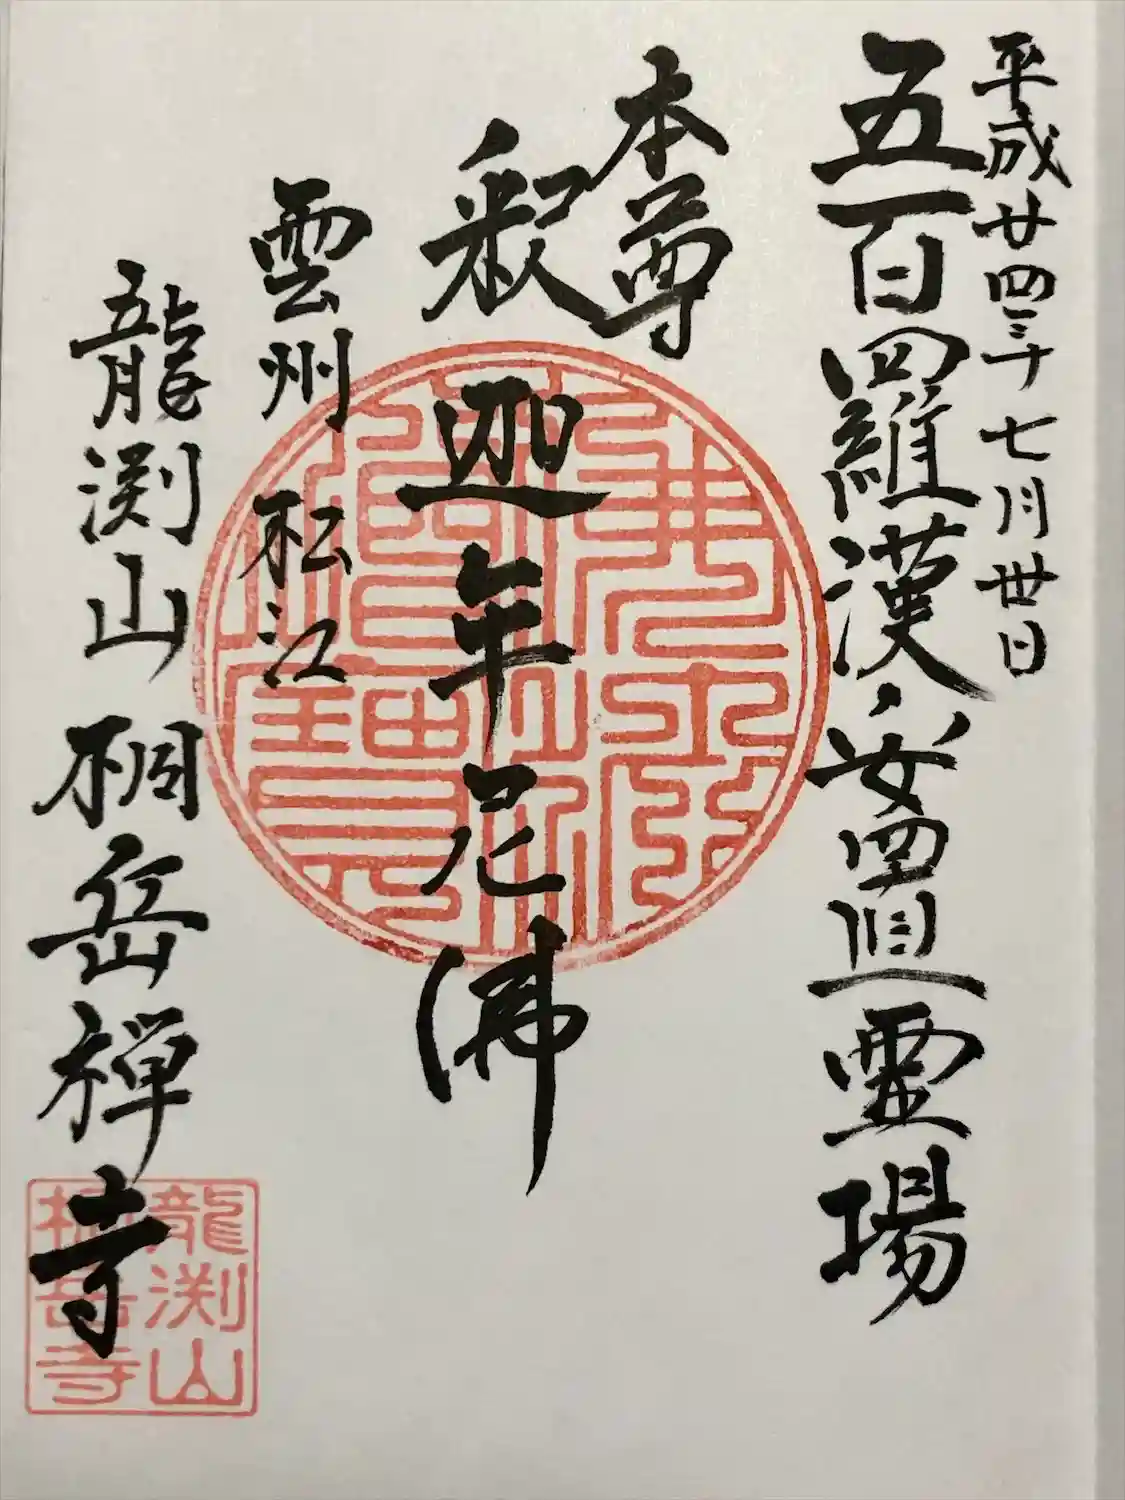 平成廿四年七月丗日
五百羅漢・霊場
本尊
釈迦牟尼佛
雲州 松江
龍渕山 桐岳禅寺
龍渕山
桐岳寺